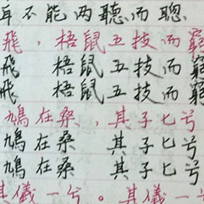 不能两聽而聰
飛，梧鼠五技而窮
飛 梧鼠五技而窮
飛 梧鼠五技而窮
鳩在桑，其子七兮
鳩在桑 其子七兮
鳩在桑 其子七兮
其儀一兮。其儀一